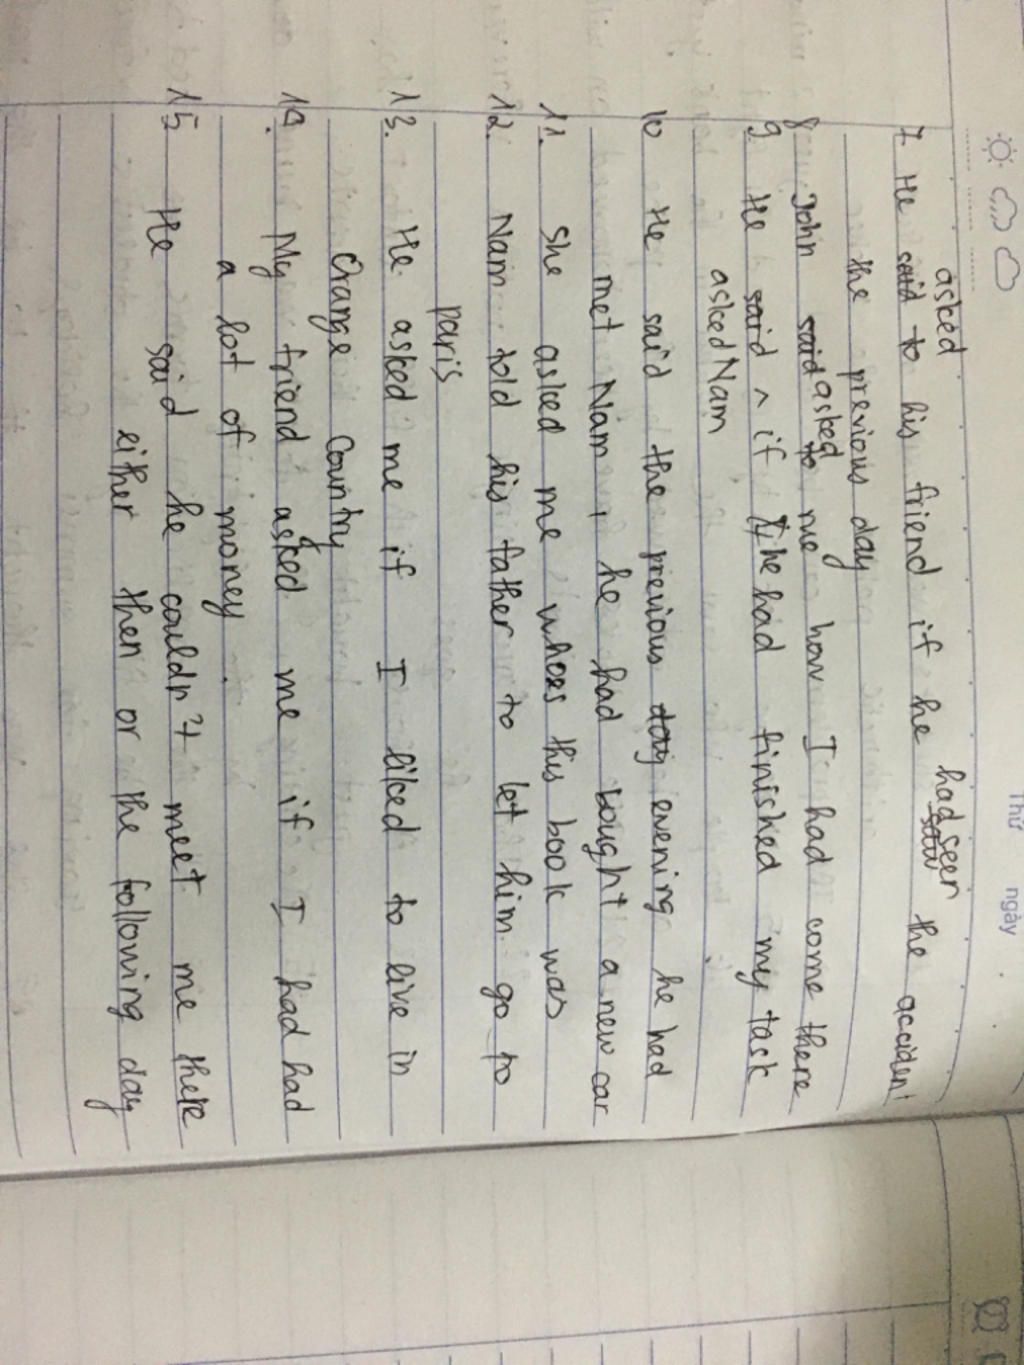 Thứ ngày
asked had seen
7 He said to his friend if he saw the accident
the previous day
8 John said asked to me how I had come there
9 He said ^ if he had finished my task
asked Nam
10 He said the previous day evening he had
met Nam, he had bought a new car
11. She asked me whoes this book was
12. Nam told his father to let him go to
paris
13. He asked me if I liked to live in
Orange Country
14. My friend asked me if I had had
a lot of money.
15 He said he couldn't meet me there
either then or the following day